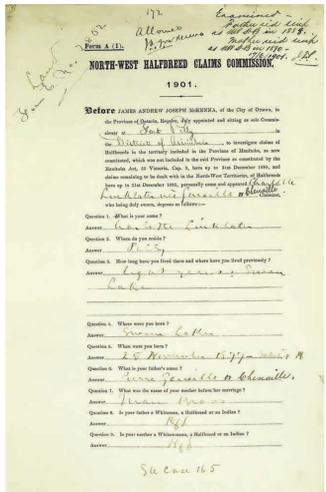 172
Examined -
Father's idscrip
as HB in 1889.
Mother's id scrip
as HB in 1890 -
1901.
Allowed
Form A (1).
Form No. 2862
NORTH-WEST HALFBREED CLAIMS COMMISSION.
1901.
Before JAMES ANDREW JOSEPH McKENNA, of the City of Ottawa, in
the Province of Ontario, Esquire, duly appointed and sitting as sole Commis-
sioner at Fort Pitt
in the District of to investigate claims of
Halfbreeds in the territory included in the Province of Manitoba, as now
constituted, which was not included in the said Province as constituted by the
Manitoba Act, 33 Victoria, Cap. 3, born up to 31st December 1885, and
claims remaining to be dealt with in the North-West Territories, of Halfbreeds
born up to 31st December 1885, personally came and appeared Charlotte
Linklater née or Chenville, Claimant
who being duly sworn, deposes as follows:—
Question 1. What is your name?
Answer Charlotte Linklater
Question 2. Where do you reside?
Answer
Question 3. How long have you lived there and where have you lived previously?
Answer Eight years;
Lake
Question 4. Where were you born?
Answer Lake
Question 5. When were you born?
Answer 25 November 1877
Question 6. What is your father's name?
Answer Pierre or Chenville.
Question 7. What was the name of your mother before her marriage?
Answer
Question 8. Is your father a Whiteman, a Halfbreed or an Indian?
Answer Hfd
Question 9. Is your mother a Whitewoman, a Halfbreed or an Indian?
Answer Hfd
See Case 165